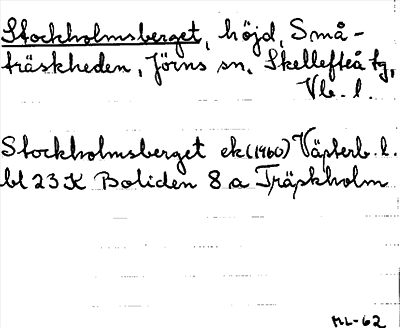 Stockholmsberget, höjd, Små-
träskheden, Jörns sn, Skellefteå tg,
Vb. l.
Stockholmsberget ek (1960) Västerb. l.
bl 23 K Boliden 8 a Träskholm
ML-62